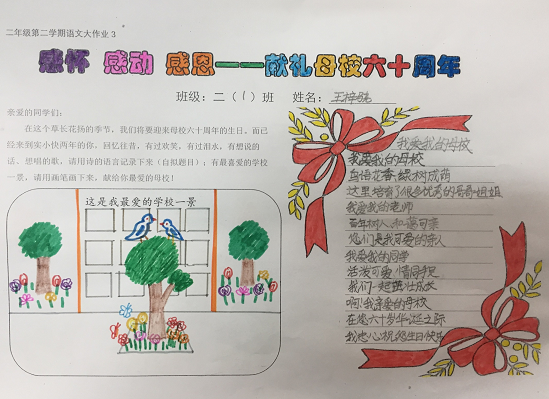 二年级第二学期语文大作业3
感怀 感动 感恩——献礼母校六十周年
班级:二(1)班 姓名:王梓
亲爱的同学们:
在这个草长花扬的季节,我们将要迎来母校六十周年的生日。而已
经来到实小快两年的你,回忆往昔,有过欢笑,有过泪水,有想说的
话、想唱的歌,请用诗的语言记录下来(自拟题目);有最喜爱的学校一
景,请用画笔画下来,献给你最爱的母校!
这是我最爱的学校一景
我爱我的母校
我爱我的母校
鸟语花香,绿树成荫
这里培育了很多优秀的哥哥姐姐
我爱我的老师
百年树人,和蔼可亲
您们是我可爱的亲人
我爱我的同学
活泼可爱,情同手足
我们一起茁壮成长
啊!我亲爱的母校
在您六十岁华诞之际
我忠心祝您生日快乐